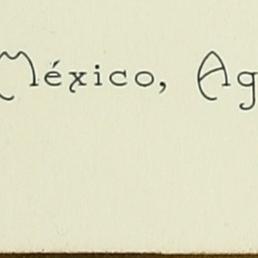 México, Ag